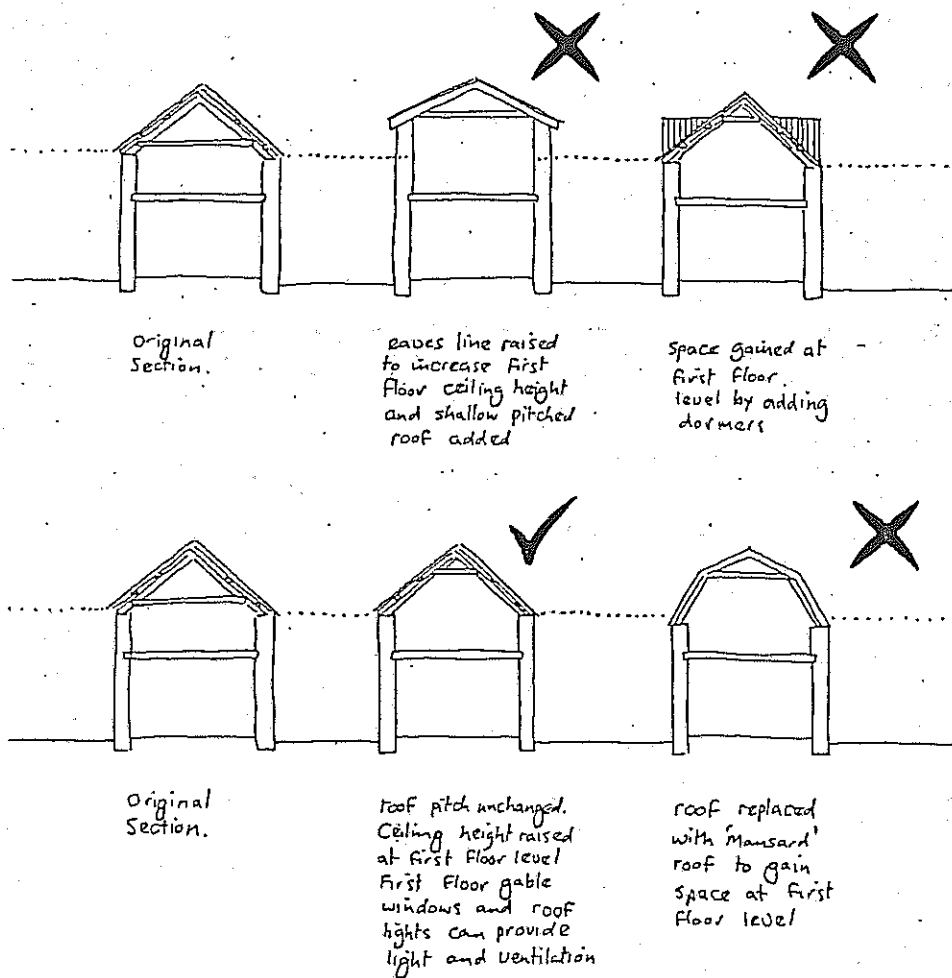 Original
Section.
eaves line raised
to increase First
Floor ceiling height
and shallow pitched
roof added
Space gained at
first floor.
level by adding
dormers
Original
Section.
roof pitch unchanged.
Ceiling height raised
at First Floor level
First Floor gable
windows and roof
lights can provide
light and ventilation
roof replaced
with 'Mansard'
roof to gain
space at first
floor level